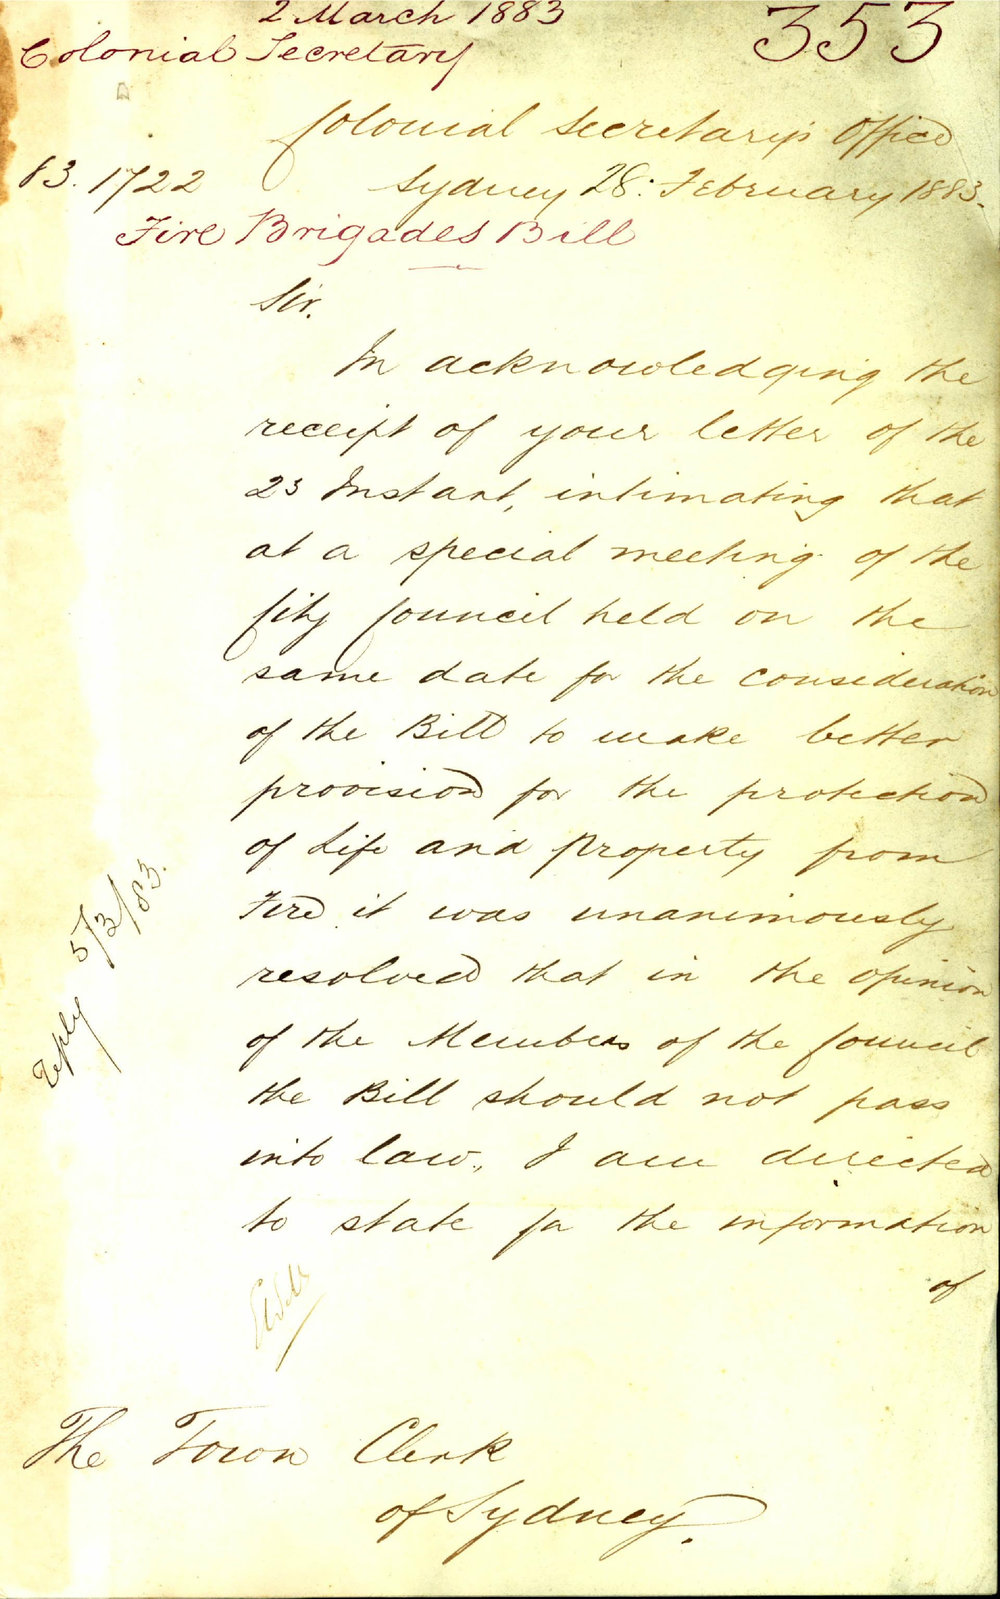 2 March 1883
353
Colonial Secretary
Colonial Secretary's Office
83.1722
Sydney 28: February 1883.
Fire Brigades Bill
Sir.
In acknowledging the
receipt of your letter of the
23 Instant, intimating that
at a special meeting of the
City Council held on the
same date for the consideration
of the Bill to make better
provision for the protection
of Life and Property from
Fire it was unanimously
resolved that in the opinion
of the Members of the Council
the Bill should not pass
into law, I am directed
to state for the information
of
Reply 5/3/83.
The Town Clerk
of Sydney.